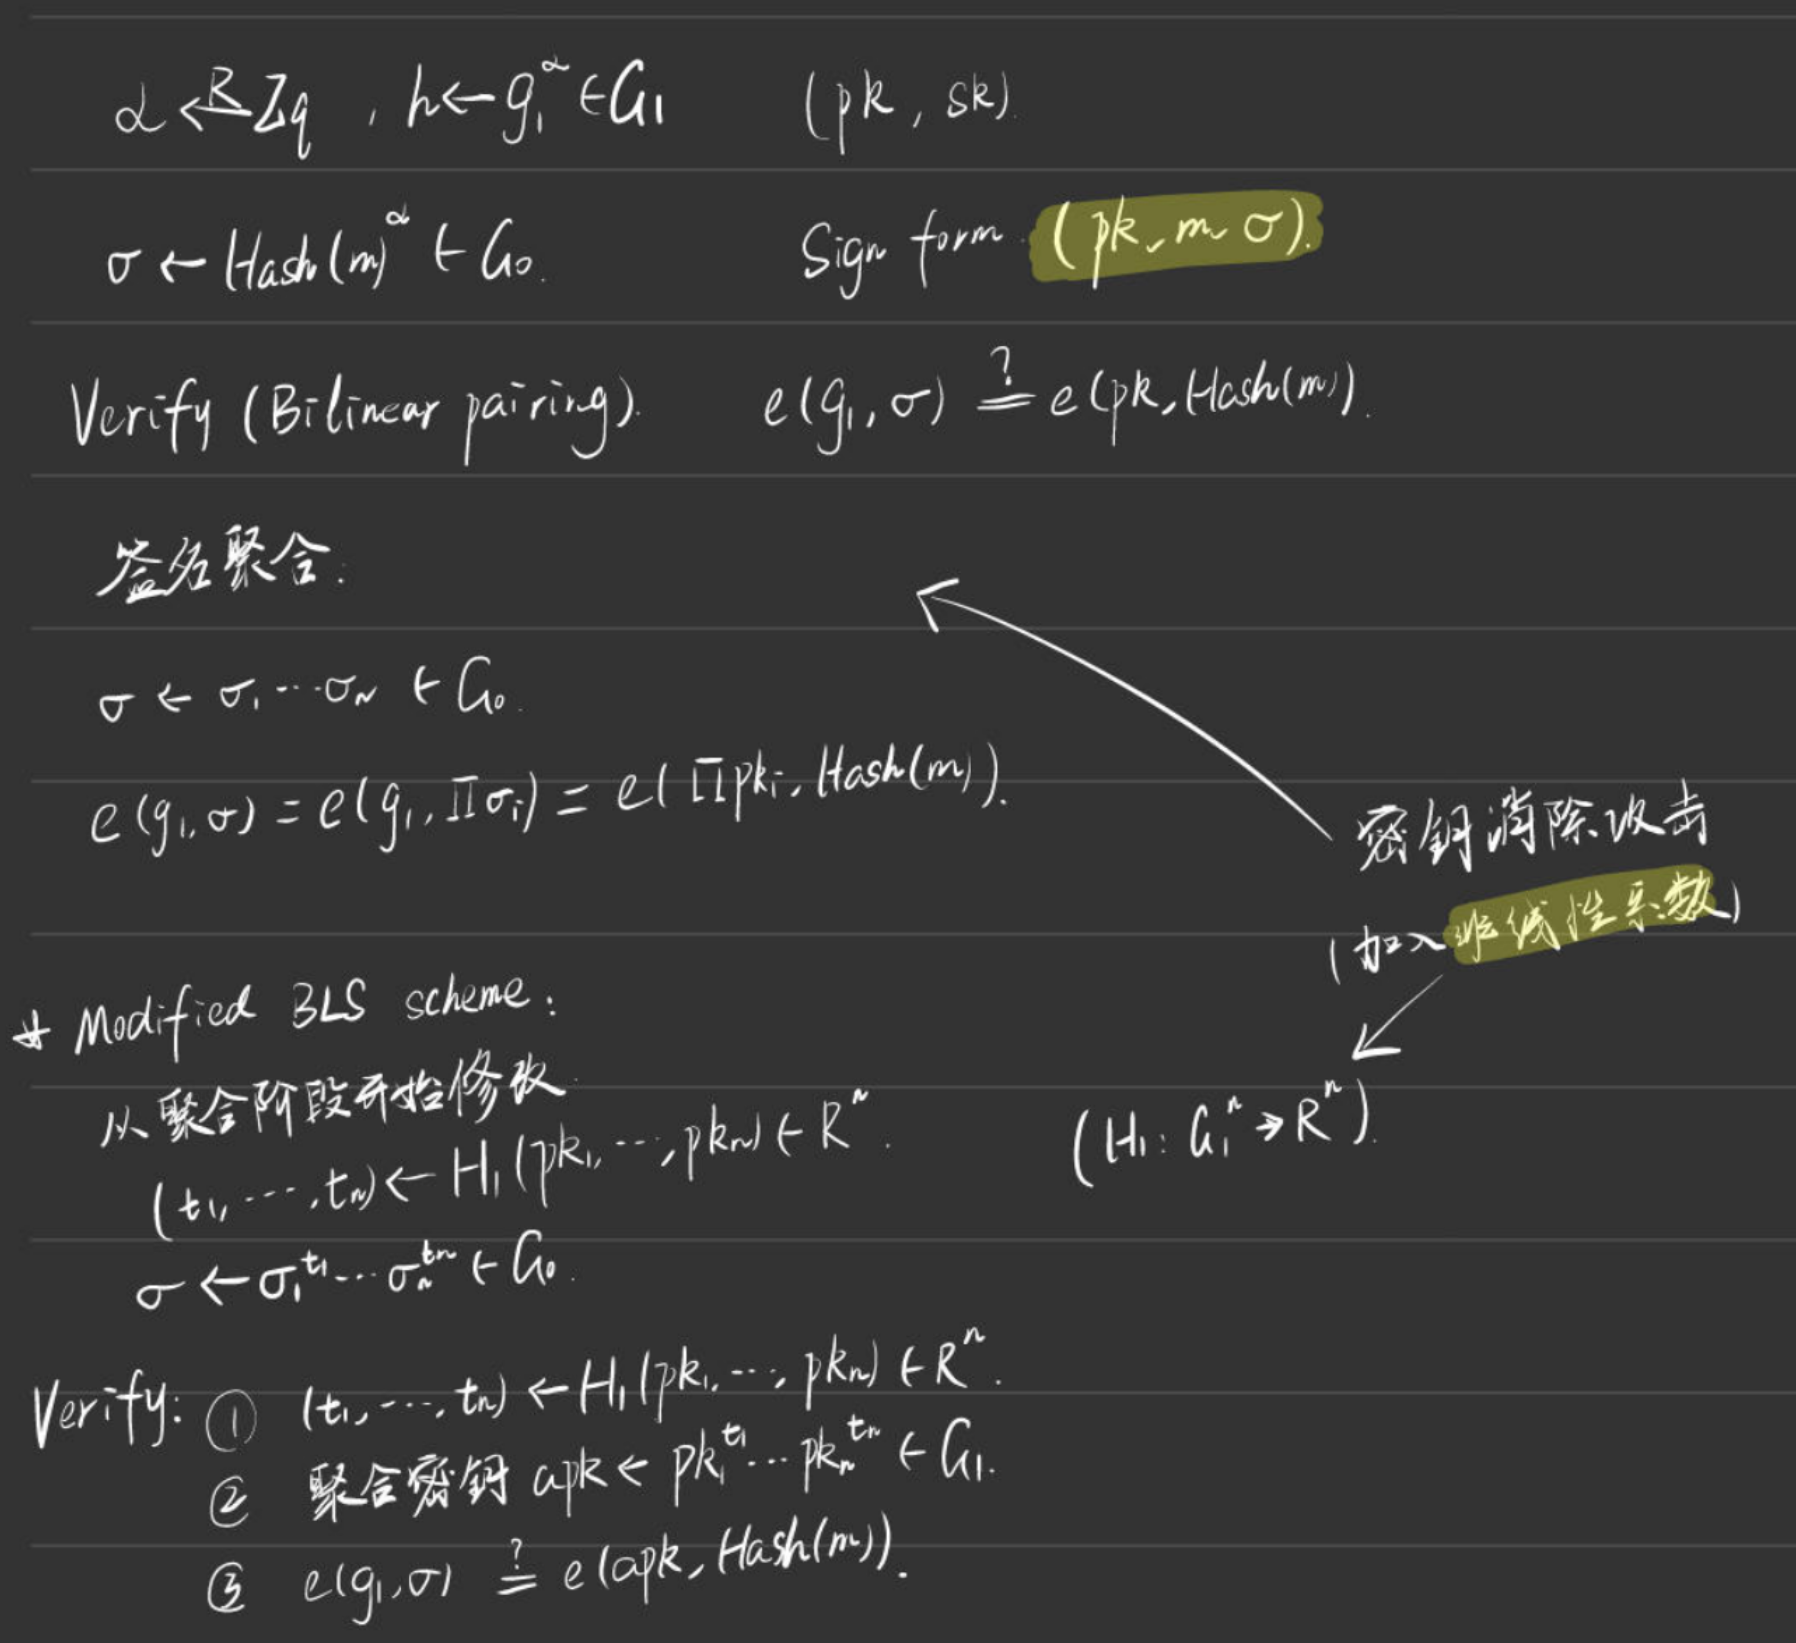 α ←R Zq , h ← g₁^α ∈ G₁ (pk, sk).
σ ← Hash(m)^α ∈ G₀. Sign form (pk, m, σ).
Verify (Bilinear pairing). e(g₁, σ) ?= e(pk, Hash(m)).
签名聚合:
σ ← σ₁ ··· σₙ ∈ G₀.
e(g₁, σ) = e(g₁, ∏σᵢ) = e(∏pkᵢ, Hash(m)).
密钥消除攻击
(加入非线性系数)
* Modified BLS scheme:
从聚合阶段开始修改
(t₁, ···, tₙ) ← H₁(pk₁, ···, pkₙ) ∈ Rⁿ. (H₁: G₁ⁿ → Rⁿ).
σ ← σ₁^t₁ ··· σₙ^tₙ ∈ G₀.
Verify: ① (t₁, ···, tₙ) ← H₁(pk₁, ···, pkₙ) ∈ Rⁿ.
② 聚合密钥 apk ← pk₁^t₁ ··· pkₙ^tₙ ∈ G₁.
③ e(g₁, σ) ?= e(apk, Hash(m)).